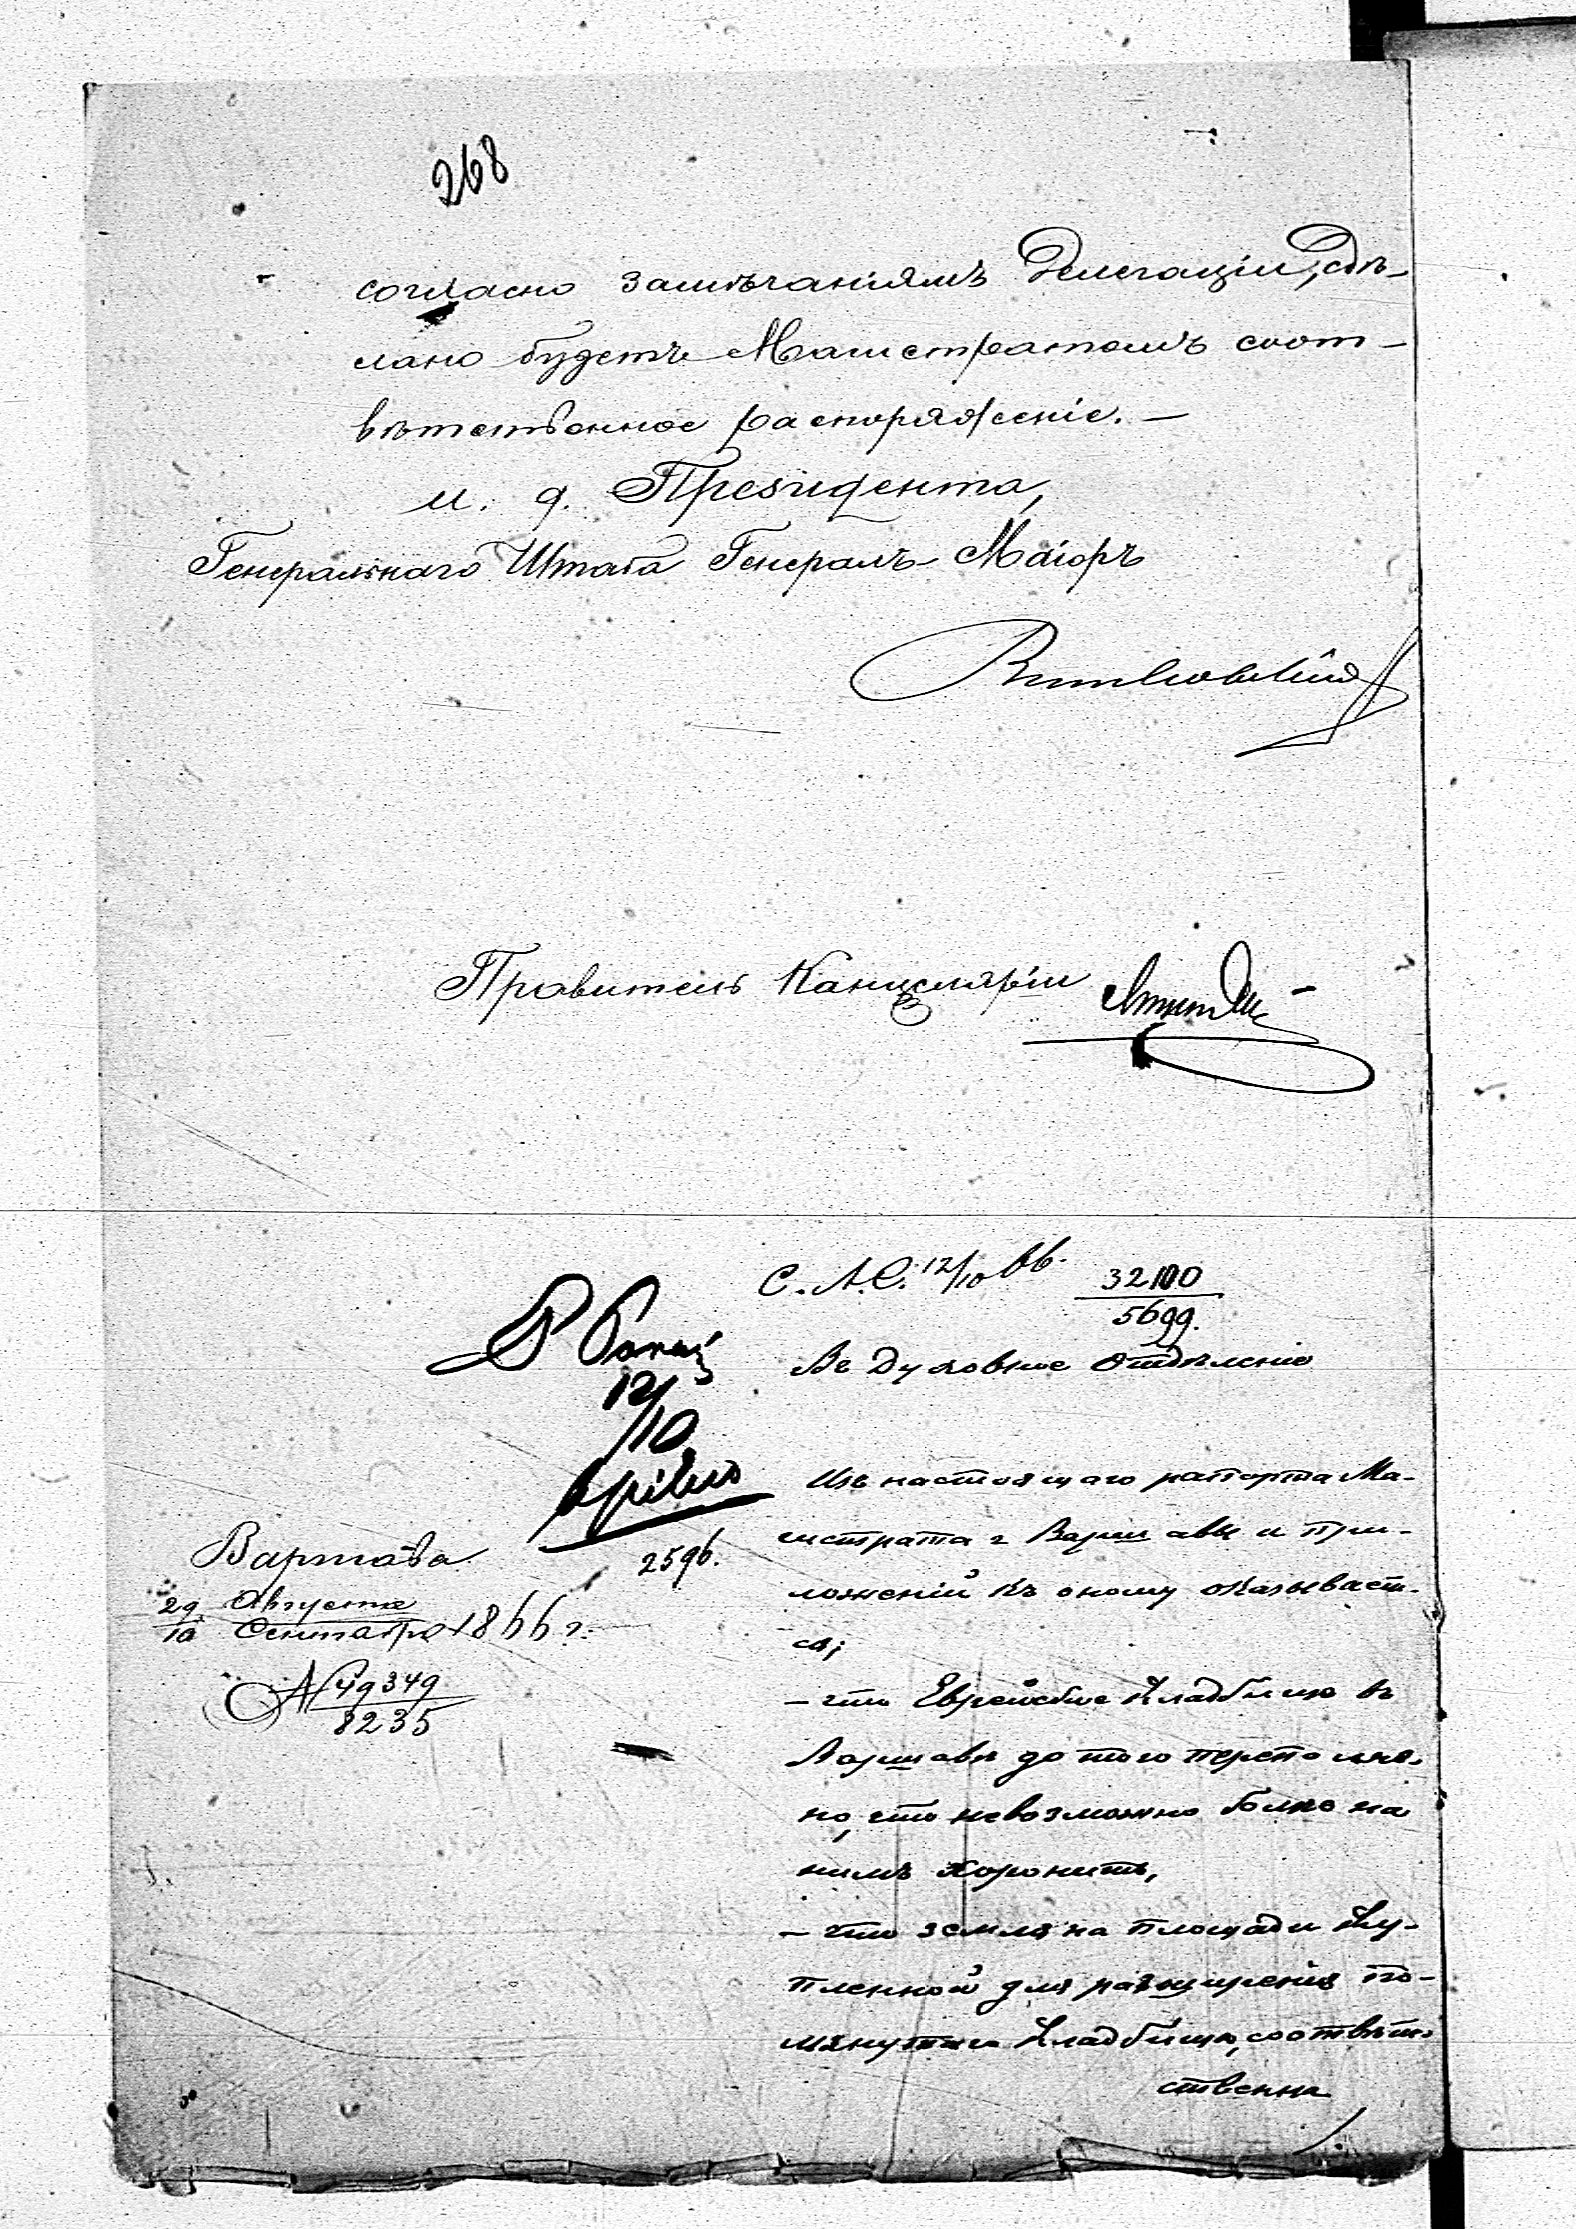 268
согласно замѣчаніямъ Делегаціи, сдѣ-
лано будетъ Магистратомъ соот-
вѣтственное распоряженіе. —
И. д. Президента,
Генеральнаго Штаба Генералъ-Маіоръ
Витковскій
Правитель Канцеляріи
С. А. С. 12/10 66.
32100
5699.
Въ Духовное Отдѣленіе
12/10
2596.
Варшава
29 Августа
10 Сентября 1866 г.
№ 49349
8235
Изъ настоящаго рапорта Ма-
гистрата г Варшавы и при-
ложеній къ оному оказывает-
ся;
— что Еврейское кладбище въ
Варшавѣ до того переполне-
но, что невозможно болѣе на
нимъ хоронить,
— что земля на площади ку-
пленной для разширенія по-
мянутаго кладбища, соотвѣт-
ственна